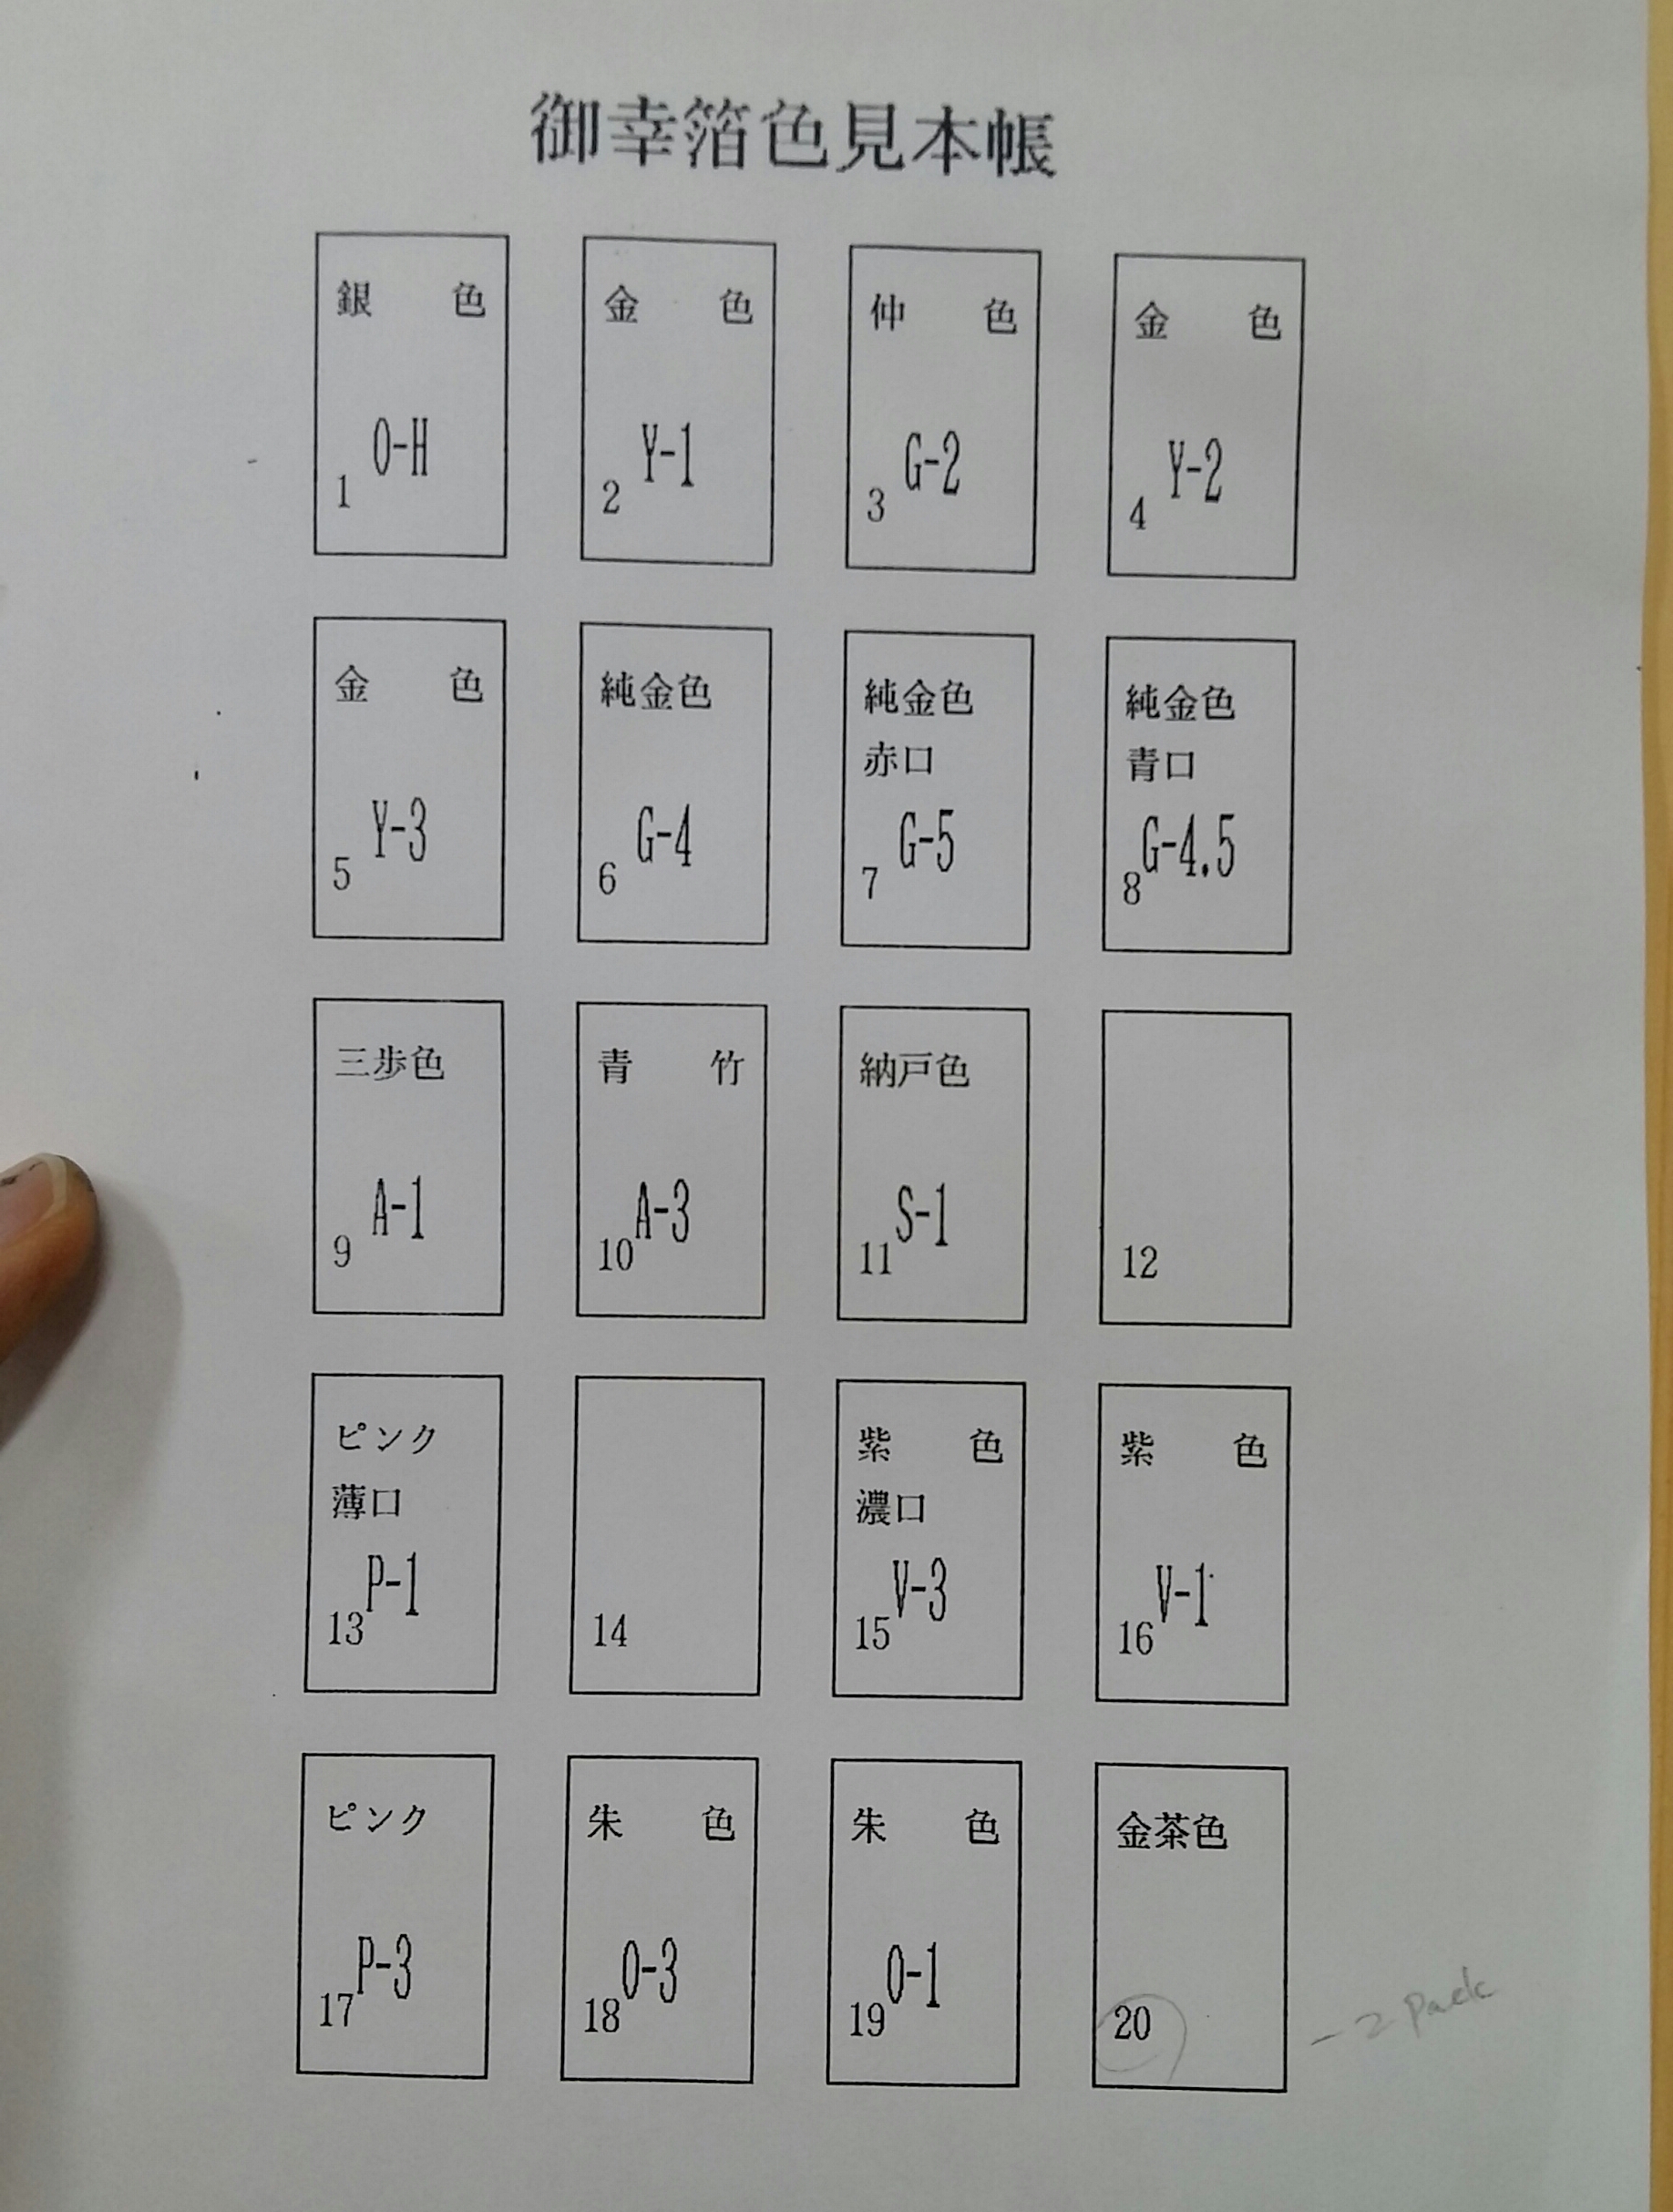 御幸箔色見本帳
銀 色
O-H
1
金 色
Y-1
2
仲 色
G-2
3
金 色
Y-2
4
金 色
Y-3
5
純金色
G-4
6
純金色
赤口
G-5
7
純金色
青口
G-4.5
8
三歩色
A-1
9
青 竹
A-3
10
納戸色
S-1
11
12
ピンク
薄口
P-1
13
14
紫 色
濃口
V-3
15
紫 色
V-1
16
ピンク
P-3
17
朱 色
O-3
18
朱 色
O-1
19
金茶色
20
- 2 pack